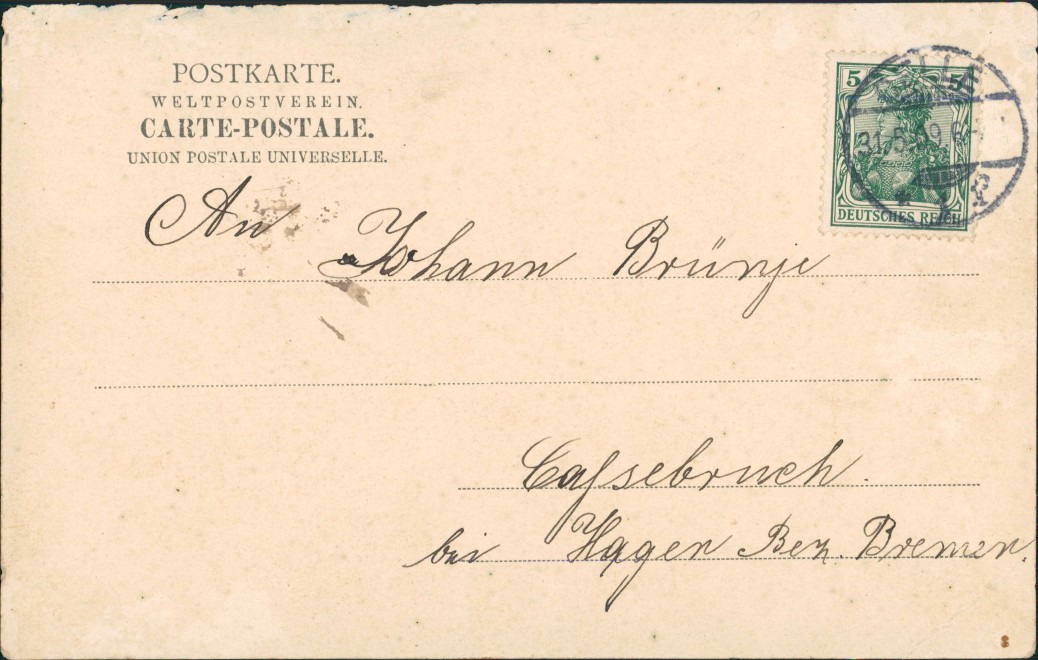 POSTKARTE.
WELTPOSTVEREIN.
CARTE-POSTALE.
UNION POSTALE UNIVERSELLE.
5 5
DEUTSCHES REICH
An
Johann Brünje
Cassebruch.
bei Hagen Bez. Bremen.